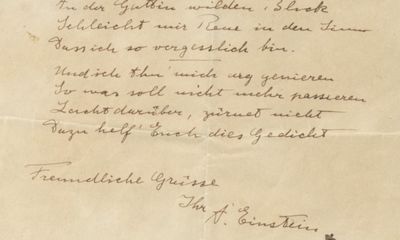 In der Gattin wilden Blick
Schleicht mir Reue in den Sinn
Dass ich so vergesslich bin.
Und ich thu' mich arg genieren
So was soll nicht mehr passieren
Lacht darüber, zürnet nicht
Dazu helf' Euch dies Gedicht
Freundliche Grüsse
Ihr A. Einstein